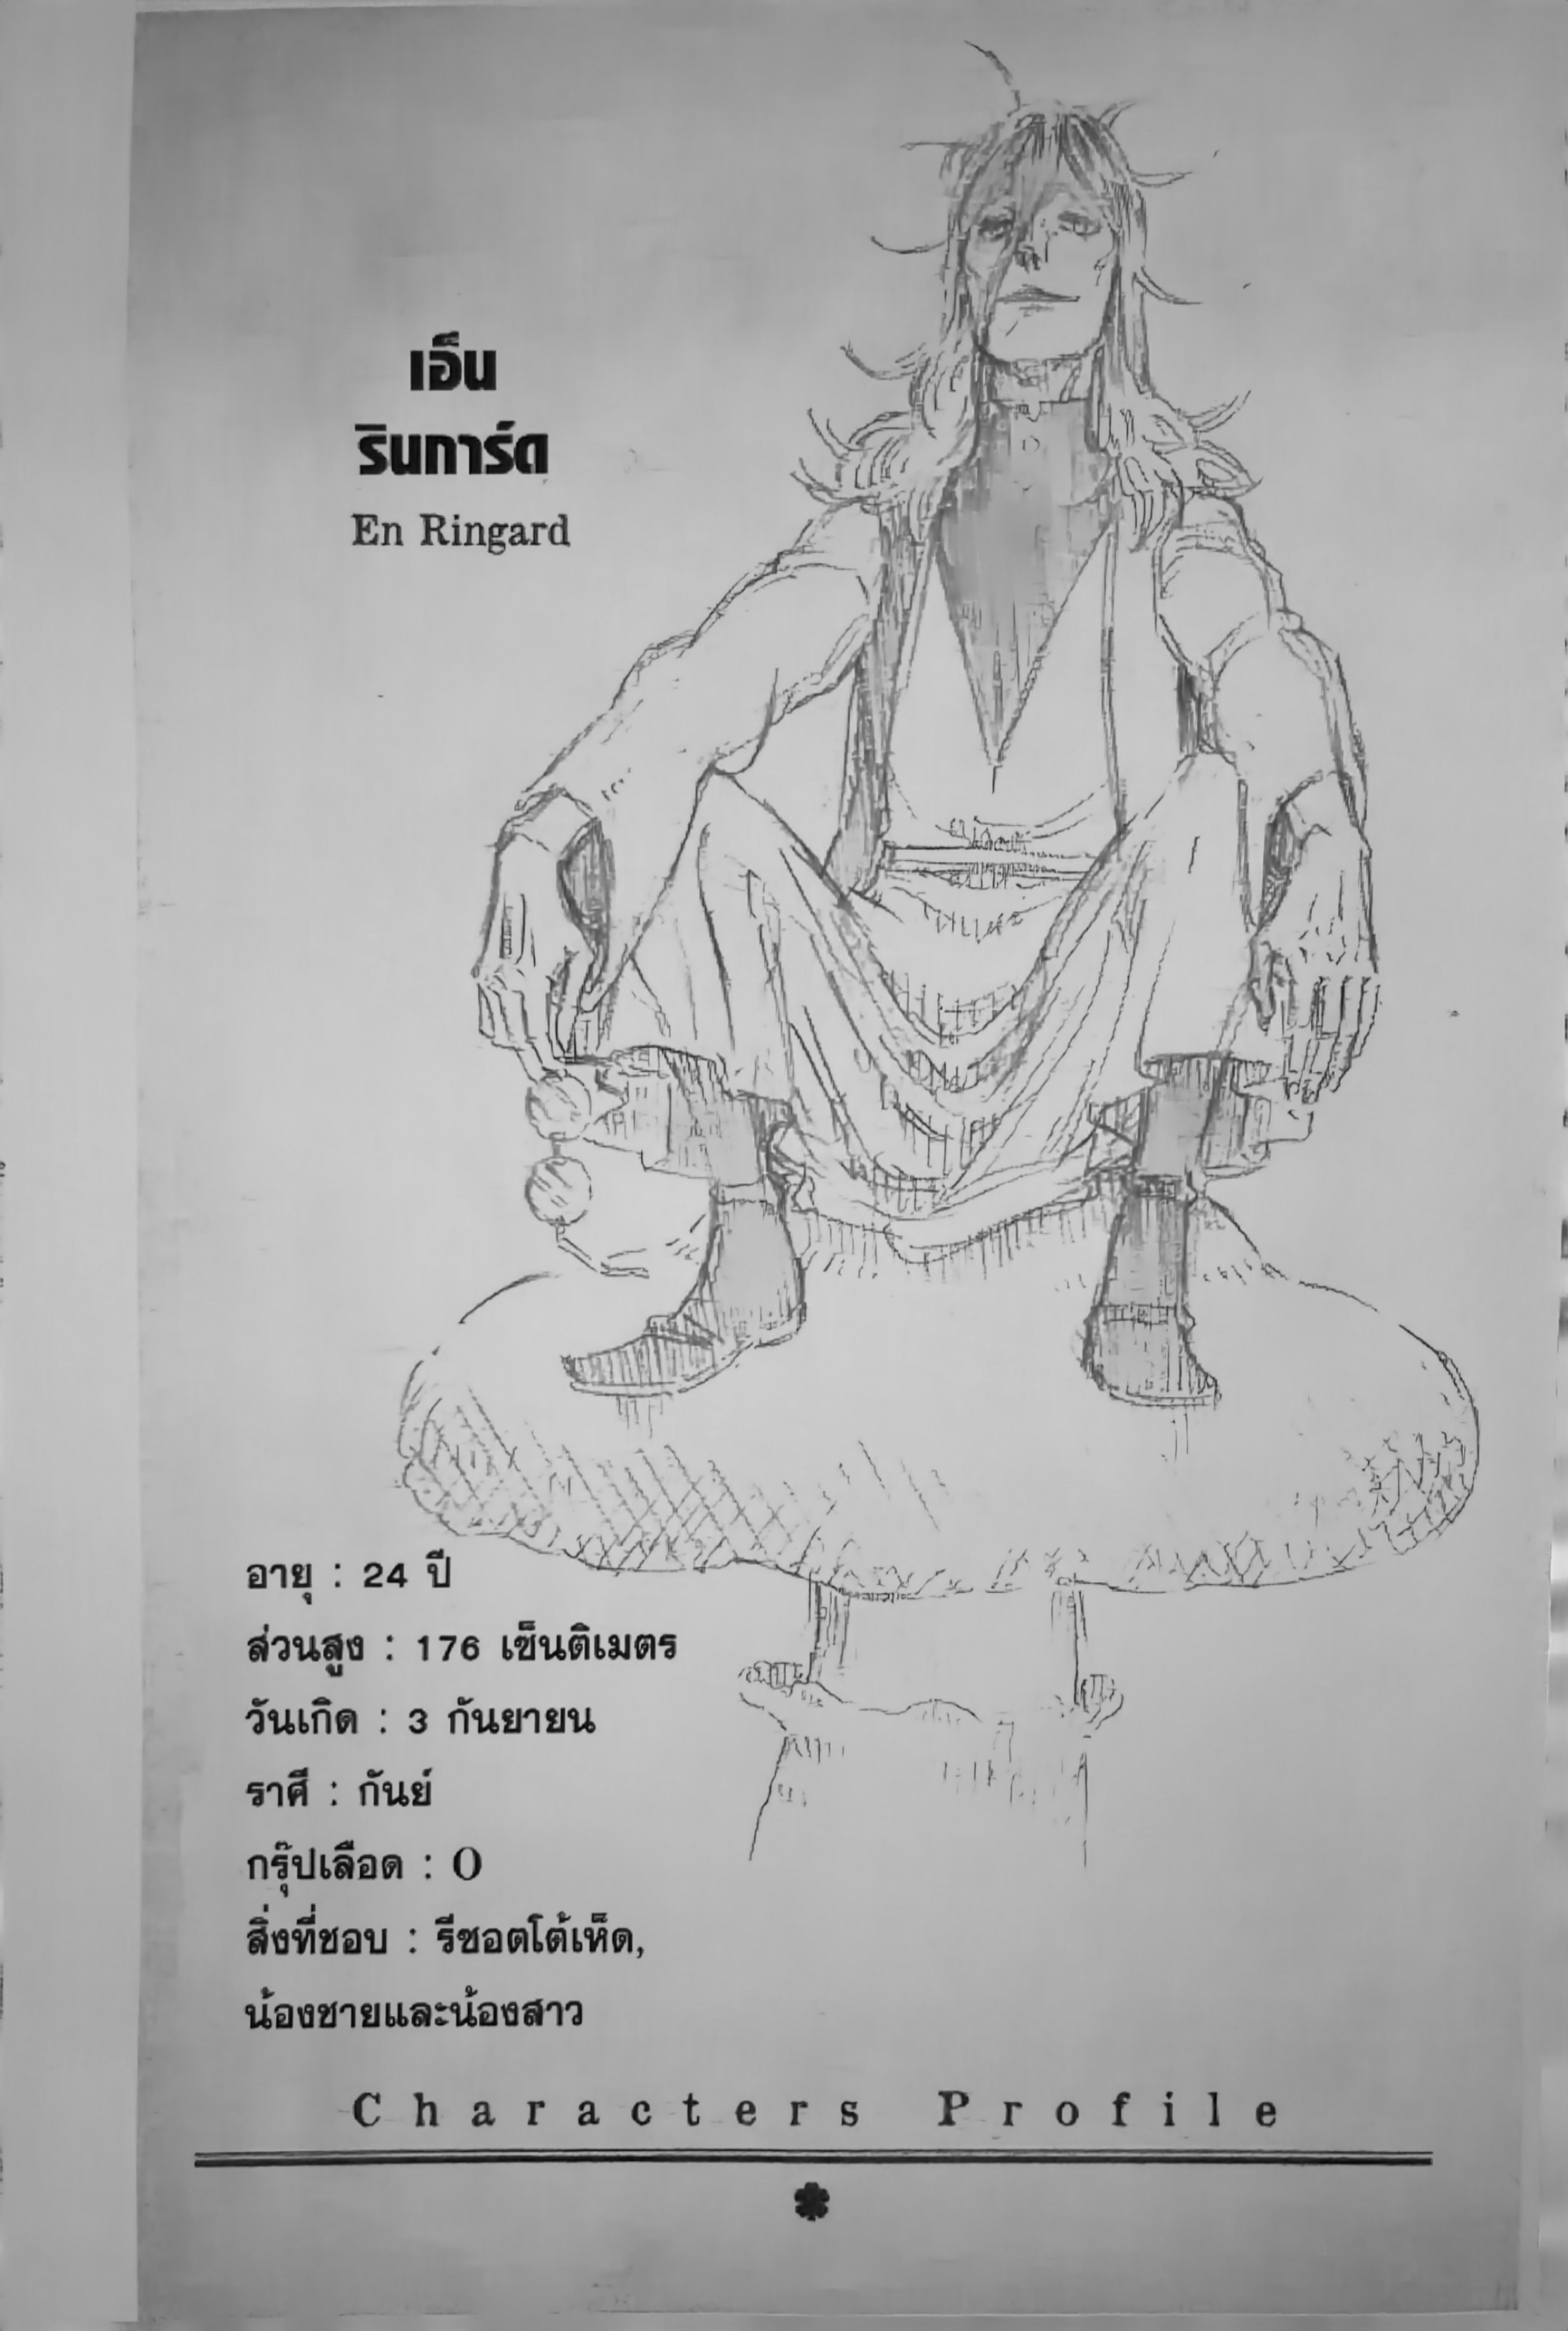 เอ็น
รินการ์ด
En Ringard
อายุ : 24 ปี
ส่วนสูง : 176 เซ็นติเมตร
วันเกิด : 3 กันยายน
ราศี : กันย์
กรุ๊ปเลือด : O
สิ่งที่ชอบ : รีซอตโต้เห็ด,
น้องชายและน้องสาว
Characters Profile